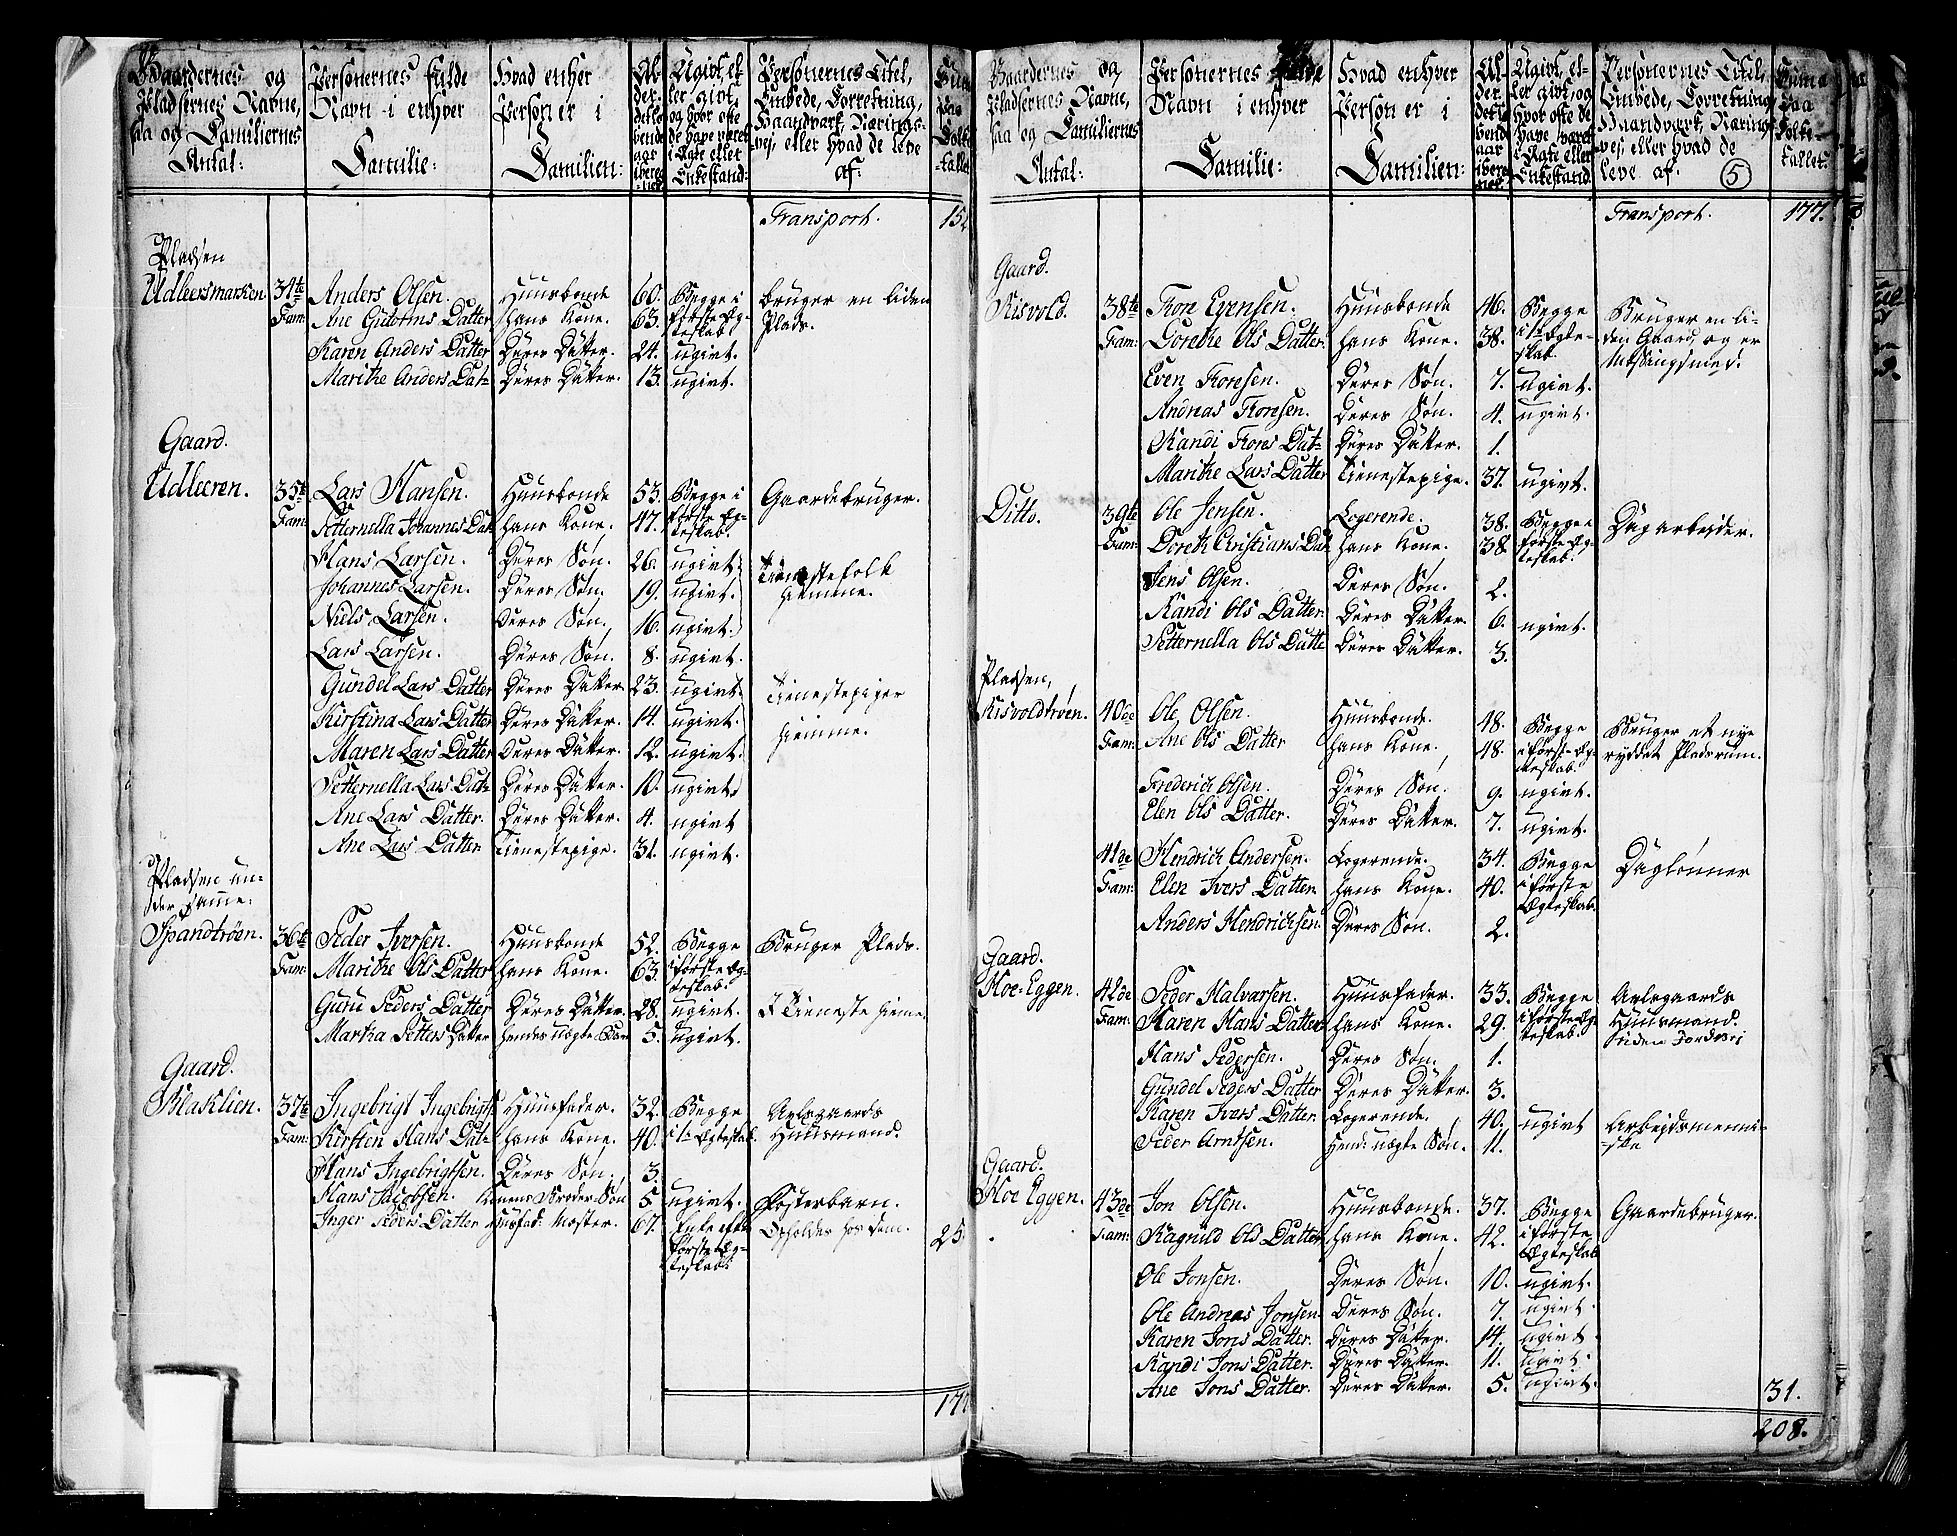 Gaardernes og
Pladsernes Navne,
saa og Familiernes
Antal:
Personernes fulde
Navn i enhver
Familie:
Hvad enhver
Person er i
Familien:
Al-
der.
det lø-
bende
aar
ibereg-
net
Ugivt, el-
ler givt,
og hvor ofte
de have været
i Ægte eller
Enkestand:
Personernes Titel,
Embede, Forretning,
Haandverk, Nærings-
vej, eller hvad de leve
af:
Transport. 15
Pladsen
Udleersmarken 34te Anders Olsen. Huusbonde 60. Begge i bruger en liden
Fam: Ane Guttorms Datter hans Kone. 63. første Æg- Plads.
teskab
Karen Anders Datter Deres Datter. 24. ugivt.
Marithe Anders Dat- Deres Datter. 13. ugivt.
Gaard.
Udleeren. 35te Lars Hansen. Huusbonde 53. Begge i Gaardebruger.
Fam: Petternella Johannes Dat hans Kone. 47. første Æg-
teskab.
Hans Larsen. Deres Søn. 26. ugivt. Tienestefolk
Johannes Larsen. Deres Søn. 19. ugivt. hiemme.
Niels Larsen. Deres Søn. 16. ugivt.
Lars Larsen. Deres Søn. 8. ugivt.
Gundel Lars Datter Deres Datter. 23. ugivt. Tienestepiger
Kirstina Lars Datter Deres Datter. 14. ugivt. hiemme.
Maren Lars Datter Deres Datter. 12. ugivt.
Petternella Lars Dat- Deres Datter. 10. ugivt
Ane Lars Datter. Deres Datter. 4. ugivt
Ane Lars Datter Tienestepige. 31. ugivt.
Pladsen un-
der samme.
Spandtrøen. 36te Peder Iversen. Huusbonde 52. Begge Bruger Plads.
Fam: Marithe Ols Datter hans Kone. 63. i første Æg-
teskab.
Guru Peders Datter Deres Datter. 28. ugivt. I Tieneste hieme
Martha Petters Datter hendes uægte Barn 5. ugivt.
Gaard.
Blaklien. 37te Ingebrigt Ingebrigts Huusfader. 32. Begge Avlsgaards
Fam: Kirsten Hans Dat- hans Kone. 40. i 1te Ægteskab Huusmand.
Hans Ingebrigtsen. Deres Søn. 3.
Hans Jacobsen. Konens Broder Søn 5. ugivt. Fosterbarn.
Inger Peders Datter Huusfad: Moster. 67. Enke efter Opholdes hos dem. 25
første Æg-
teskab
17
Gaardernes og
Pladsernes Navne,
saa og Familiernes
Antal:
Personernes fulde
Navn i enhver
Familie:
Hvad enhver
Person er i
Familien:
Al-
der.
det lø-
bende
aar
ibereg-
net
Ugivt, el-
ler givt, og
hvor ofte de
have været
i Ægte eller
Enkestand.
Personernes Titel,
Embede, Forretning,
Haandverk, Nærings-
vej, eller hvad de
leve af. 5
Suma
paa
Folke-
tallet:
Transport. 177.
Gaard.
Risvold. 38te Tron Evensen. Huusbonde 46. Begge Bruger en li-
Fam: Gorethe Ols Datter. hans Kone. 38. i 1te Ægte- den Gaard, og er
skab. Messingsmed.
Even Tronsen. Deres Søn. 7. ugivt.
Andreas Tronsen. Deres Søn. 4. ugivt.
Randi Trons Dat- Deres Datter. 1.
Marithe Lars Datter Tienestepige. 37. ugivt.
Ditto. 39te Ole Jensen. Logerende. 38. Begge i Dagarbeider.
Fam: Doreth Christians Dat hans Kone. 38. første Æg-
teskab.
Jens Olsen. Deres Søn. 2.
Randi Ols Datter. Deres Datter. 6. ugivt.
Petternella Ols Datte Deres Datter. 3.
Pladsen,
Risvoldtrøen. 40de Ole Olsen. Huusbonde. 48. Begge Bruger et nye
Fam: Ane Ols Datter hans Kone. 48. i første Æg- ryddet Pladsrum.
teskab.
Frederich Olsen. Deres Søn. 9. ugivt.
Elen Ols Datter. Deres Datter. 7. ugivt.
41de Hendrich Andersen. Logerende. 34. Begge Daglønner
Fam: Elen Ivers Datter hans Kone. 40. i første
Ægteskab.
Anders Hendrichsen. Deres Søn. 2.
Gaard.
Moe-Eggen. 42de Peder Halvarsen. Huusfader. 33. Begge Avlsgaards
Fam: Karen Hans Datter hans Kone. 29. i første Æg Huusmand.
teskab. uden Jordvej
Hans Pedersen. Deres Søn. 1.
Gundel Peders Datter Deres Datter. 3.
Karen Ivers Datter. Logerende. 40. ugivt Arbejdsmenni-
Peder Arntsen. Hend: uægte Søn. 11. -ske
Gaard.
Moe Eggen. 43de Jon Olsen. Huusbonde. 37. Begge Gaardebruger.
Fam: Ragnild Ols Datter hans Kone. 42. i første
Ægteskab
Ole Jonsen. Deres Søn. 10. ugivt.
Ole Andreas Jonsen. Deres Søn. 7. ugivt.
Karen Jons Datter. Deres Datter. 14. ugivt.
Randi Jons Datter. Deres Datter. 11. ugivt.
Ane Jons Datter. Deres Datter. 5. ugivt. 31.
208.